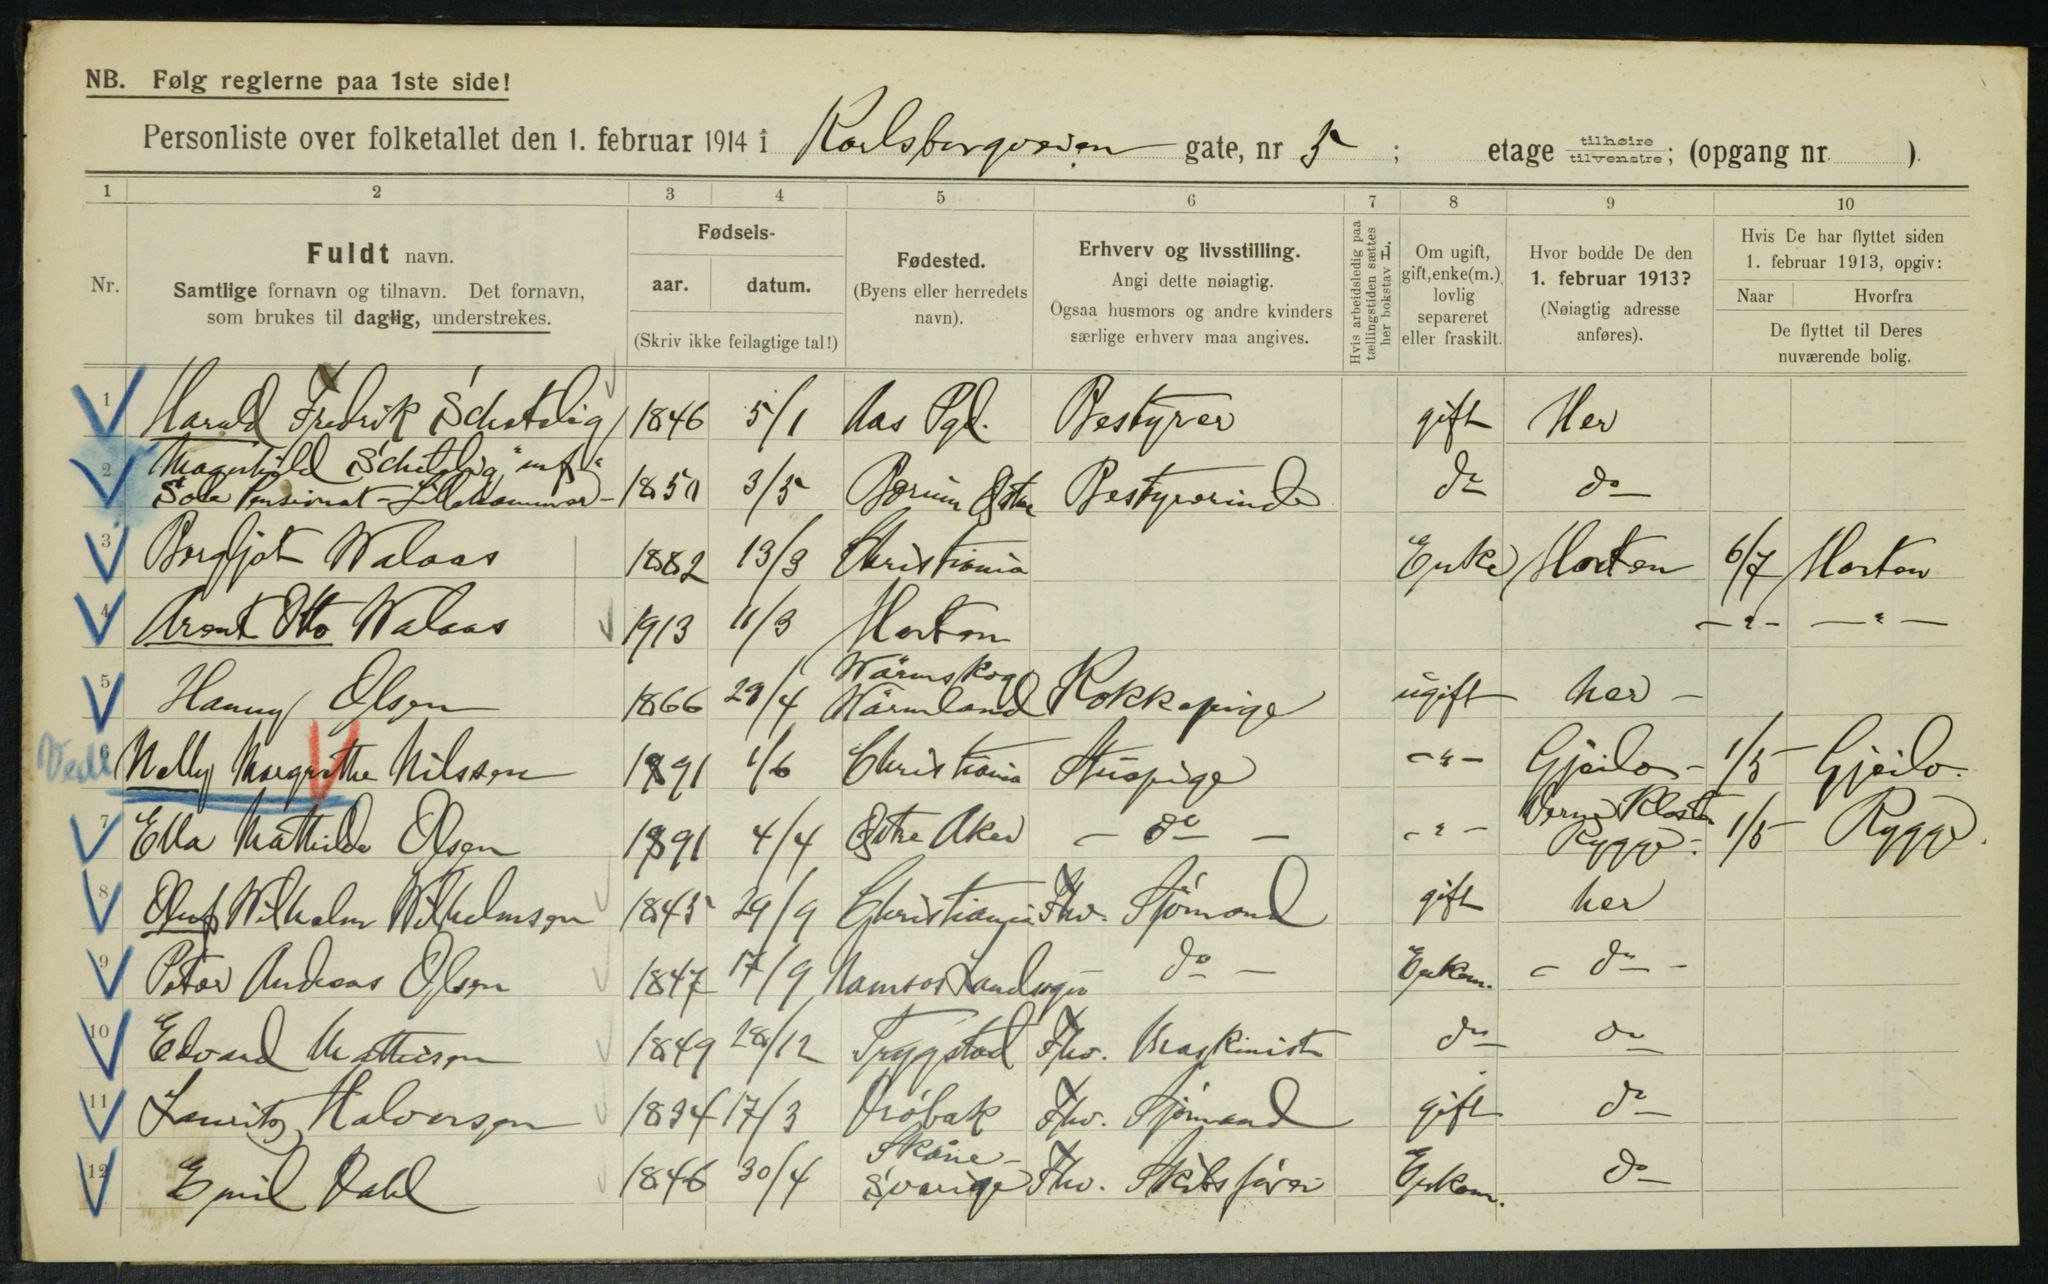 NB. Følg reglerne paa 1ste side!
Personliste over folketallet den 1. februar 1914 i Karlsborgveien gate, nr 5 ; etage tilhøire tilvenstre; (opgang nr. ).
1 2 3 4 5 6 7 8 9 10
Nr.
Fuldt navn.
Samtlige fornavn og tilnavn. Det fornavn,
som brukes til daglig, understrekes.
Fødsels-
aar. datum.
(Skriv ikke feilagtige tal!)
Fødested.
(Byens eller herredets
navn).
Erhverv og livsstilling.
Angi dette nøiagtig.
Ogsaa husmors og andre kvinders
særlige erhverv maa angives.
Hvis arbeidsledig paa
tællingstiden sættes
her bokstav L.
Om ugift,
gift, enke(m.),
lovlig
separeret
eller fraskilt.
Hvor bodde De den
1. februar 1913?
(Nøiagtig adresse
anføres).
Hvis De har flyttet siden
1. februar 1913, opgiv:
Naar Hvorfra
De flyttet til Deres
nuværende bolig.
1 Harald Fredrik Schøtelig 1846 5/1 Aas Pgd. Bestyrer gift Her
2 Magnhild Schøtelig
Pensionat - Lillehammer - 185 3/5 Bærum Bestyrerinde do do
3 Borgljot Walaas 1882 13/3 Christiania Enke Horten 6/7 Horten
4 Arent Otto Walaas 1913 11/3 Horten -"- -"-
5 Hanny Olsen 1866 29/4 Wärmskog
Wärmland Kokkepige ugift her -
6 Nelly Margrethe Nilssen 1891 1/6 Christiania Stuepige -"- Gjeilo - 1/5 Gjeilo.
7 Ella Mathilde Olsen 1891 4/4 Østre Aker - do - -"- Værne Kloster
Rygge. 1/5 Rygge.
8 Oluf Wilhelm Wilhelmsen 1845 29/9 Christiania Fhv. Sjømand gift her
9 Peter Andreas Olsen 1847 17/9 Namsos Landsogn do - Enkem. - do -
10 Edvard Mathisen 1849 28/12 Trygstad Fhv. Maskinist do do
11 Lauritz Halvorsen 1834 17/3 Drøbak Fhv. Sjømand gift do
12 Emil Dahl 1846 30/4 Skåne -
Sverige Fhv. Skibsfører Enkem. do